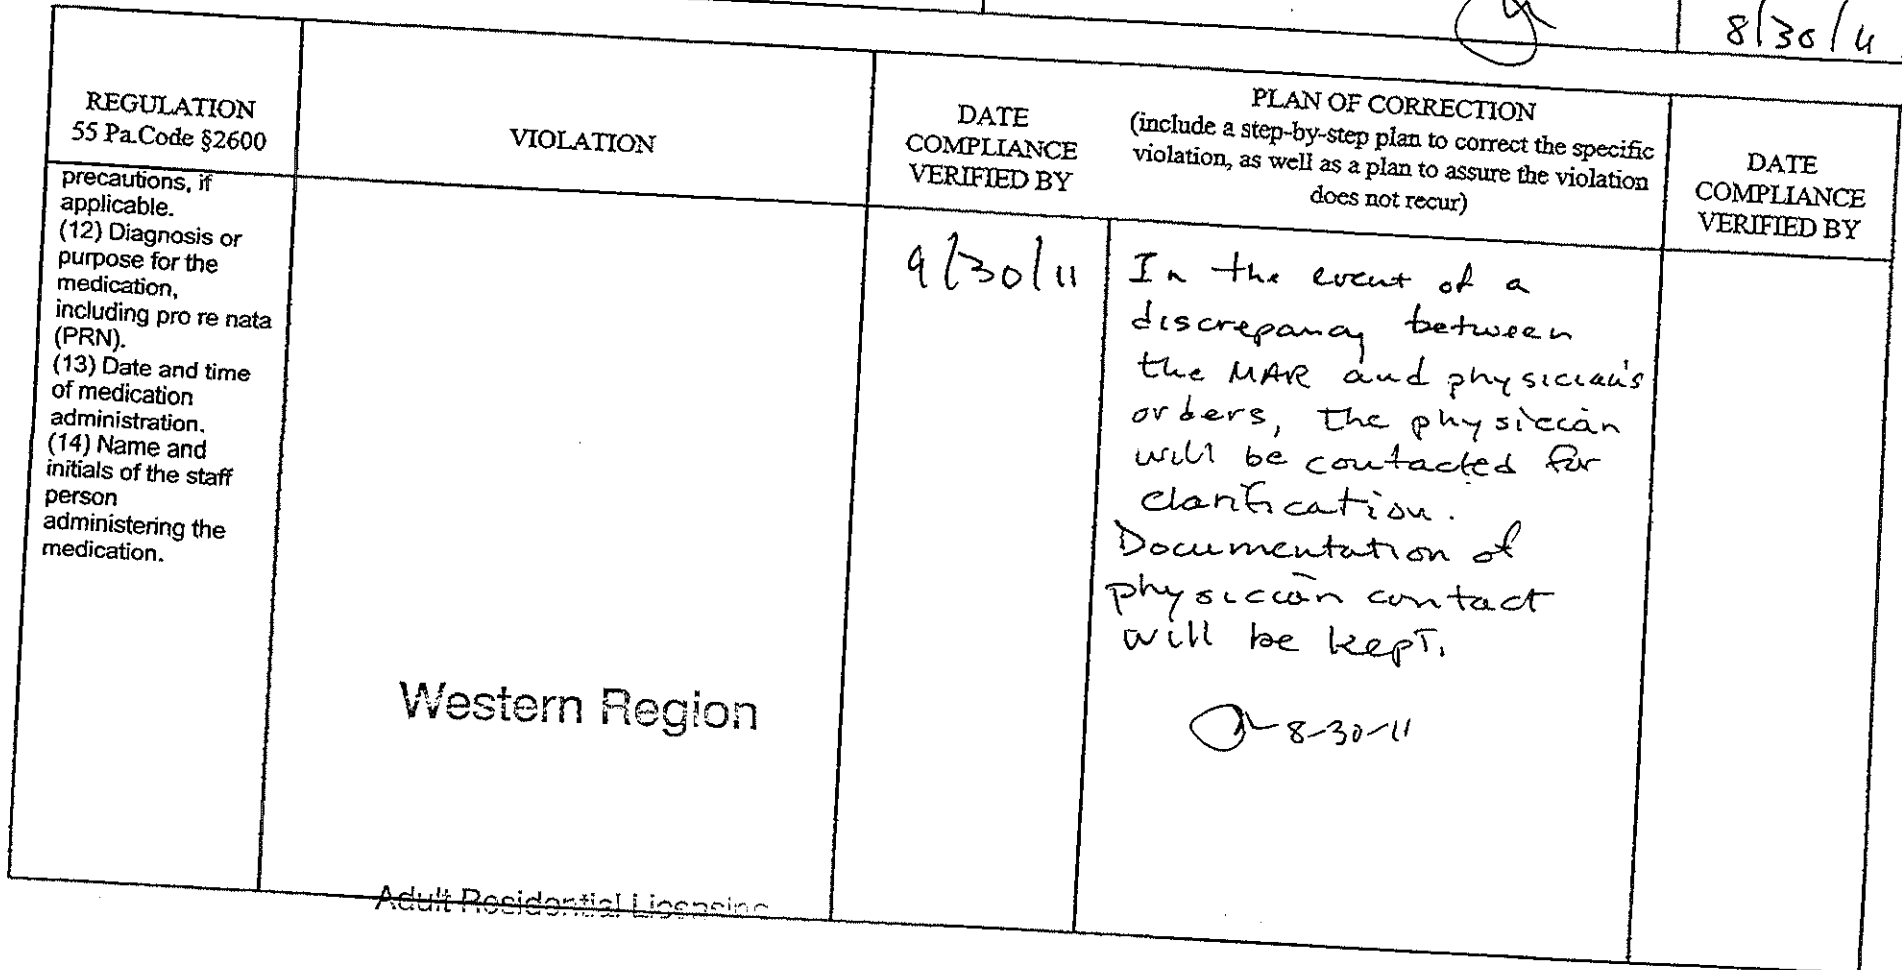 8/30/11
REGULATION
55 Pa.Code §2600
VIOLATION
DATE
COMPLIANCE
VERIFIED BY
PLAN OF CORRECTION
(include a step-by-step plan to correct the specific
violation, as well as a plan to assure the violation
does not recur)
DATE
COMPLIANCE
VERIFIED BY
precautions, if
applicable.
(12) Diagnosis or
purpose for the
medication,
including pro re nata
(PRN).
(13) Date and time
of medication
administration.
(14) Name and
initials of the staff
person
administering the
medication.
9/30/11
In the event of a
discrepancy between
the MAR and physician's
orders, the physician
will be contacted for
clarification.
Documentation of
physician contact
will be kept.
8-30-11
Western Region
Adult Residential Licensing